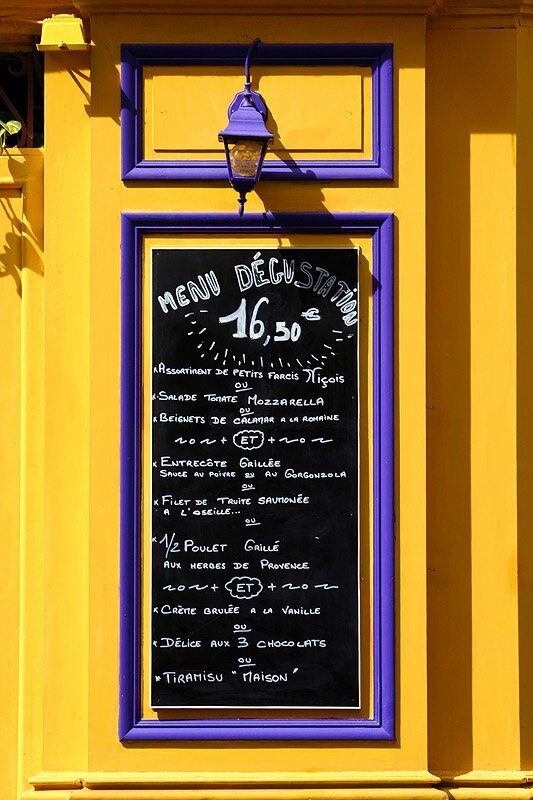 MENU DÉGUSTATION
16,50€
*ASSORTIMENT DE PETITS FARCIS NIÇOIS
OU
*SALADE TOMATE MOZZARELLA
OU
*BEIGNETS DE CALAMAR A LA ROMAINE
ET
*ENTRECÔTE GRILLÉE
SAUCE AU POIVRE OU AU GORGONZOLA
OU
*FILET DE TRUITE SAUMONÉE
A L'OSEILLE...
OU
*1/2 POULET GRILLÉ
AUX HERBES DE PROVENCE
ET
*CRÈME BRULÉE A LA VANILLE
OU
*DÉLICE AUX 3 CHOCOLATS
OU
*TIRAMISU "MAISON"